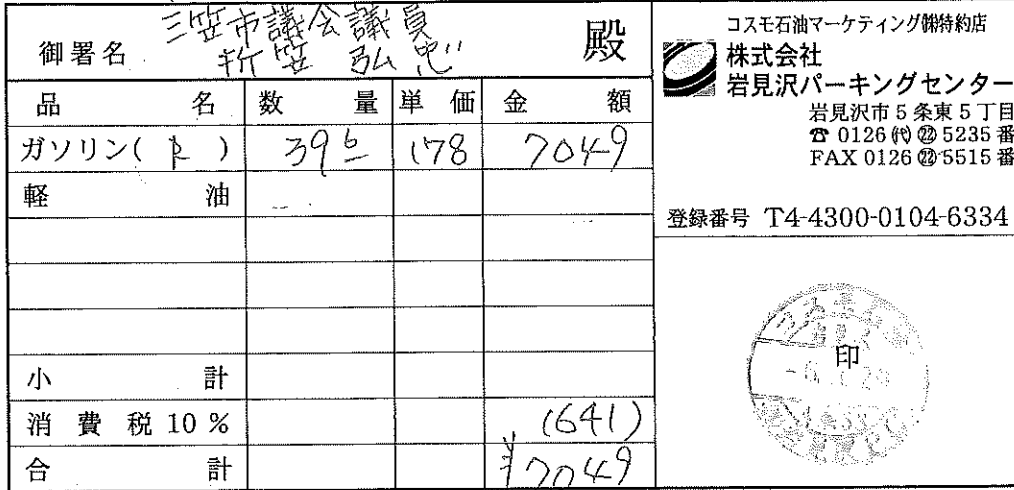 御署名 三笠市議会議員
折笠 弘忠 殿
品名 数量 単価 金額
ガソリン( ) 39.6 178 7049
軽油
小計
消費税10% (641)
合計 ¥7049
コスモ石油マーケティング㈱特約店
株式会社
岩見沢パーキングセンター
岩見沢市5条東5丁目
☎ 0126㈹㉒5235番
FAX 0126㉒5515番
登録番号 T4-4300-0104-6334
印